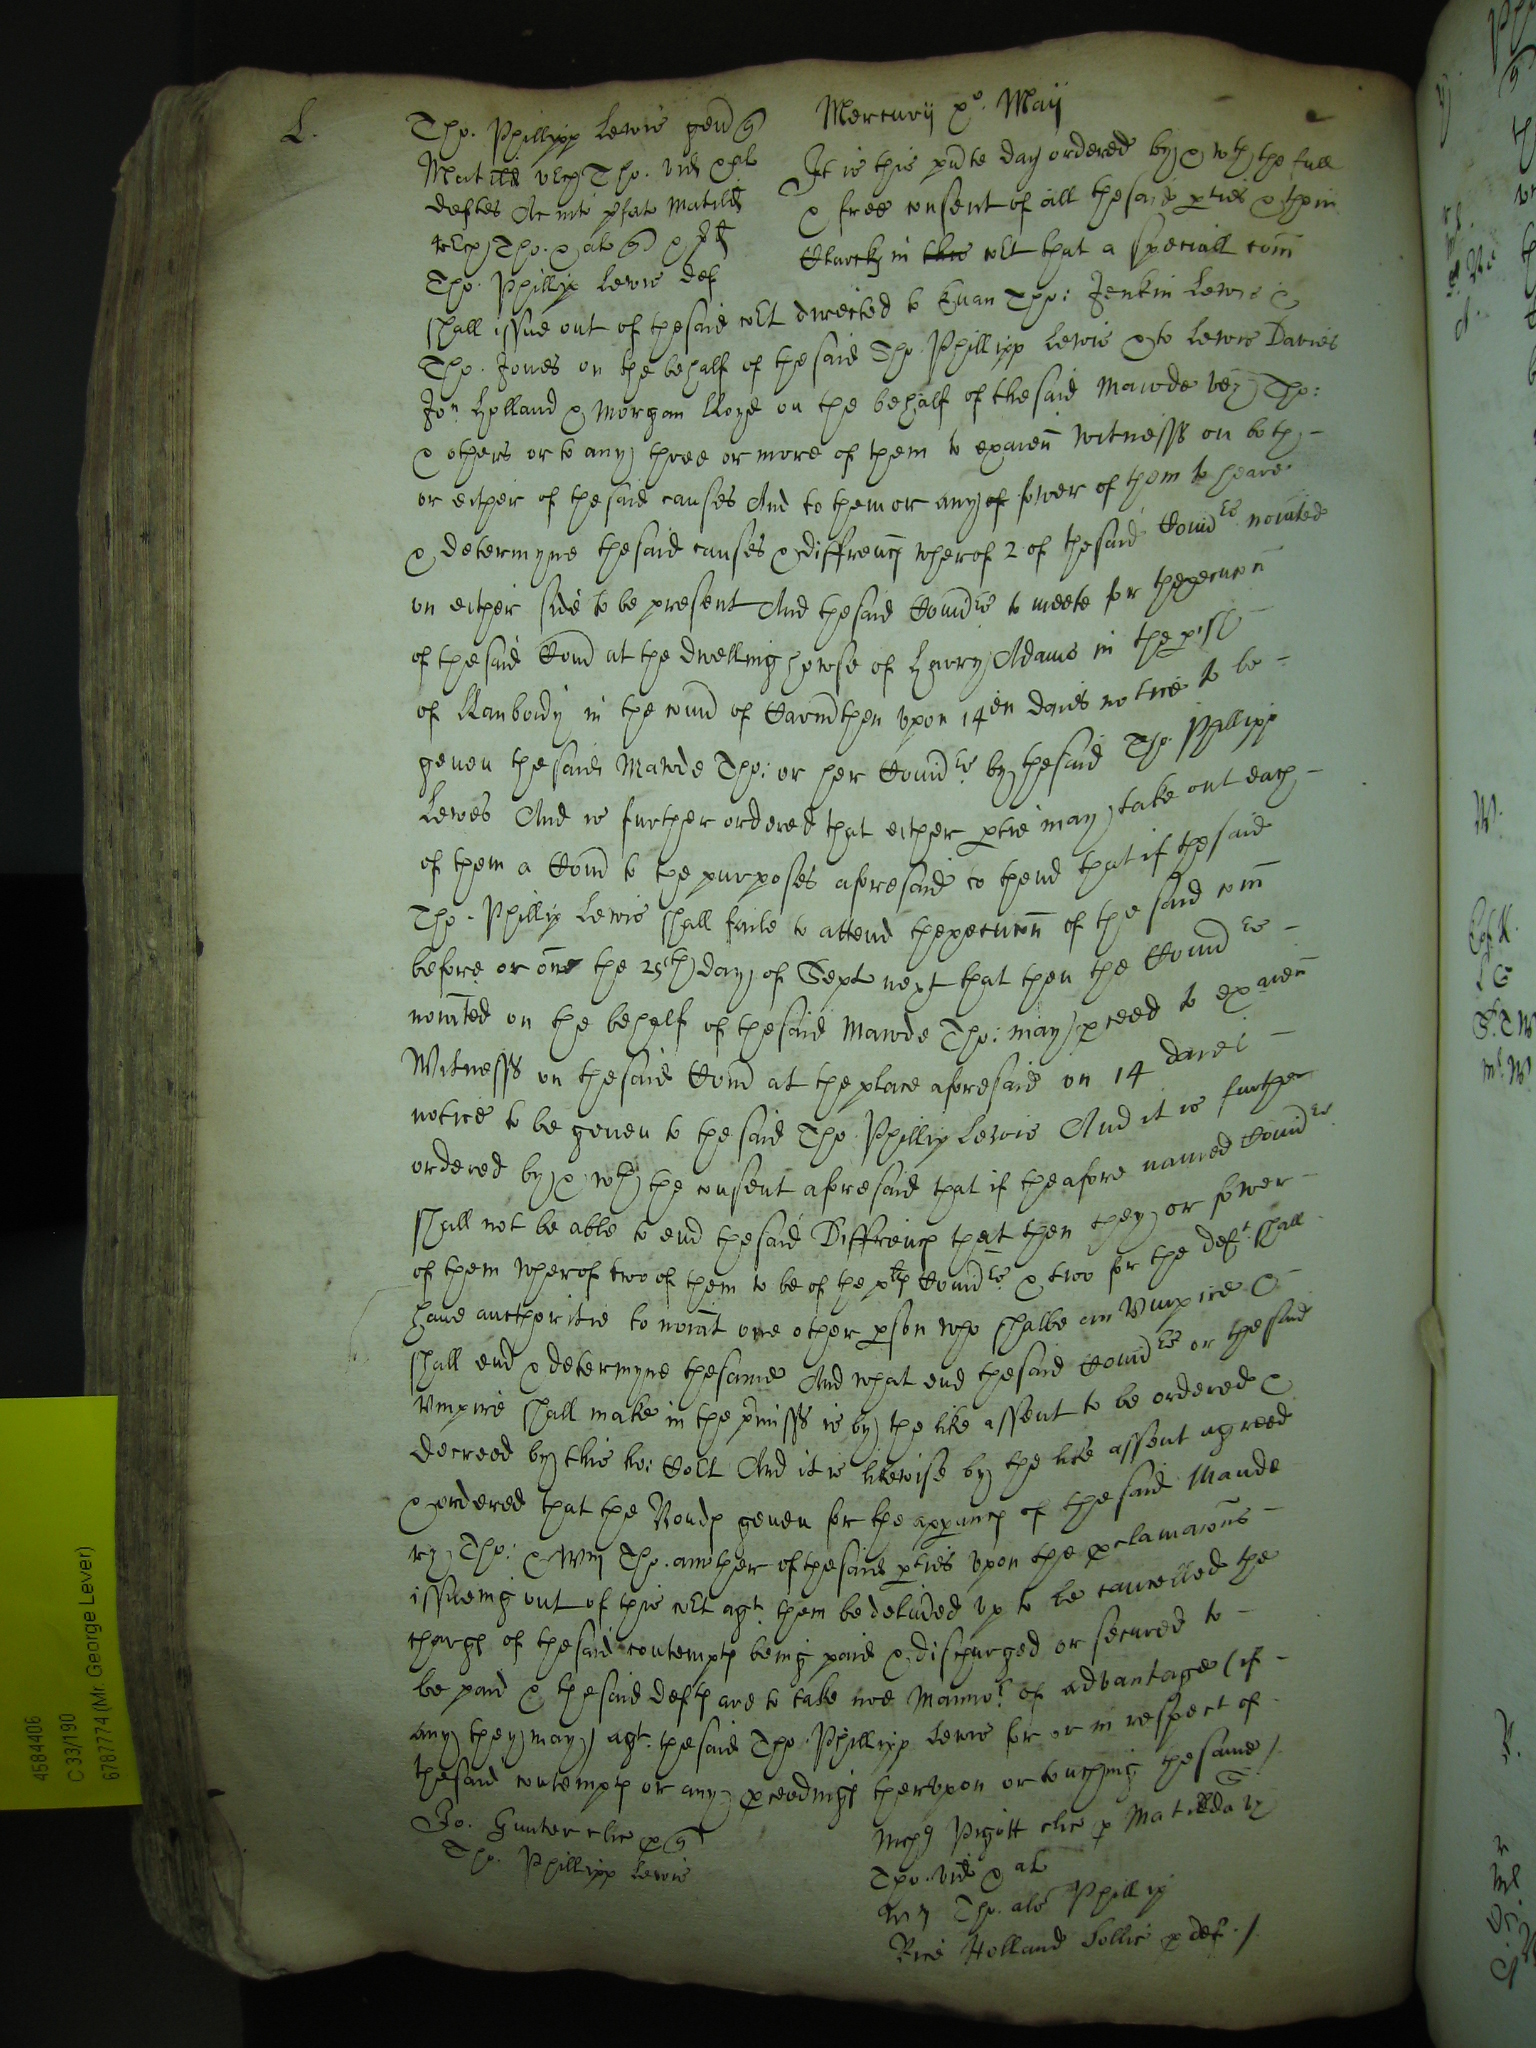 L.
Mercurij xº. Maij
Tho. Phillipp Lewis gen
Matild verch Tho. vid & al
deftes Ac inter pfat Matild
verch Tho. & al
Tho. Phillip Lewis def
It is this pnte day ordered by & wth the full
& free consent of all the said pties & their
Clarks in this cort that a speciall com
shall issue out of the said cort directed to Evan Tho: Jenkin Lewis &
Tho. Jones on the behalf of the said Tho Phillipp Lewis & to Lewis Davies
Jon Holland & Morgan lloyd on the behalf of the said Mawde vez Tho:
& others or to any three or more of them to examen witnesss on both
or either of the said causes And to them or any of fower of them to heare
& determyne the said causes & diffrenc wherof 2 of the said Comrs noiated
on either side to be present And the said Comrs to meete for thexecucon
of the said Com at the dwelling howse of Harry Adams in the pish
of llanboidy in the com of Carmthen upon 14en daies notice to be
geven the said Mawde Tho: or her Comrs by the said Tho Phillipp
Lewes And is further ordered that either ptie may take out each
of them a Com to the purposes aforesaid to thend that if the said
Tho. Phillip Lewis shall faile to attend thexecucon of the said com
before or one the 25th day of Sept next that then the Comrs
noiated on the behalf of the said Mawde Tho: may pceed to examen
Witnesss on the said Com at the place aforesaid on 14 daies
notice to be geven to the said Tho. Phillip Lewis And it is further
ordered by & wth the consent aforesaid that if the afore named Comrs
shall not be able to end the said Diffrenc that then they or fower
of them wherof two of them to be of the plt Comrs & two for the deft shall
have aucthoritie to noiat one other pson who shalbe an Vmpire &
shall end & determyne the same And what end the said Comrs or the said
vmpire shall make in the pmisss is by the like assent to be ordered &
decreed by this ho: Cort And it is likewise by the like assent agreed
& ordered that the Bond geven for the appanc of the said Maude
vz Tho: & Wm Tho. another of the said pties vpon the pclamacons
issueing out of this cort agt. them be delived vp to be cancelled the
charg of the said contempt being paid & discharged or secured to
be paid & the said deft are to take noe Mannor of advantage (if
any they may) agt. the said Tho. Phillipp Lewis for or in respect of
the said contempt or any pceeding thervpon or touching the same /.
Jo. Gunter clic p
Tho. Phillipp Lewis
Pigott clic p Matillda vz
Tho. vid & al
Wm Tho. als Phillip
Rice Holland sollic p def. /.
4584406
C 33/190
6787774 (Mr. George Lever)